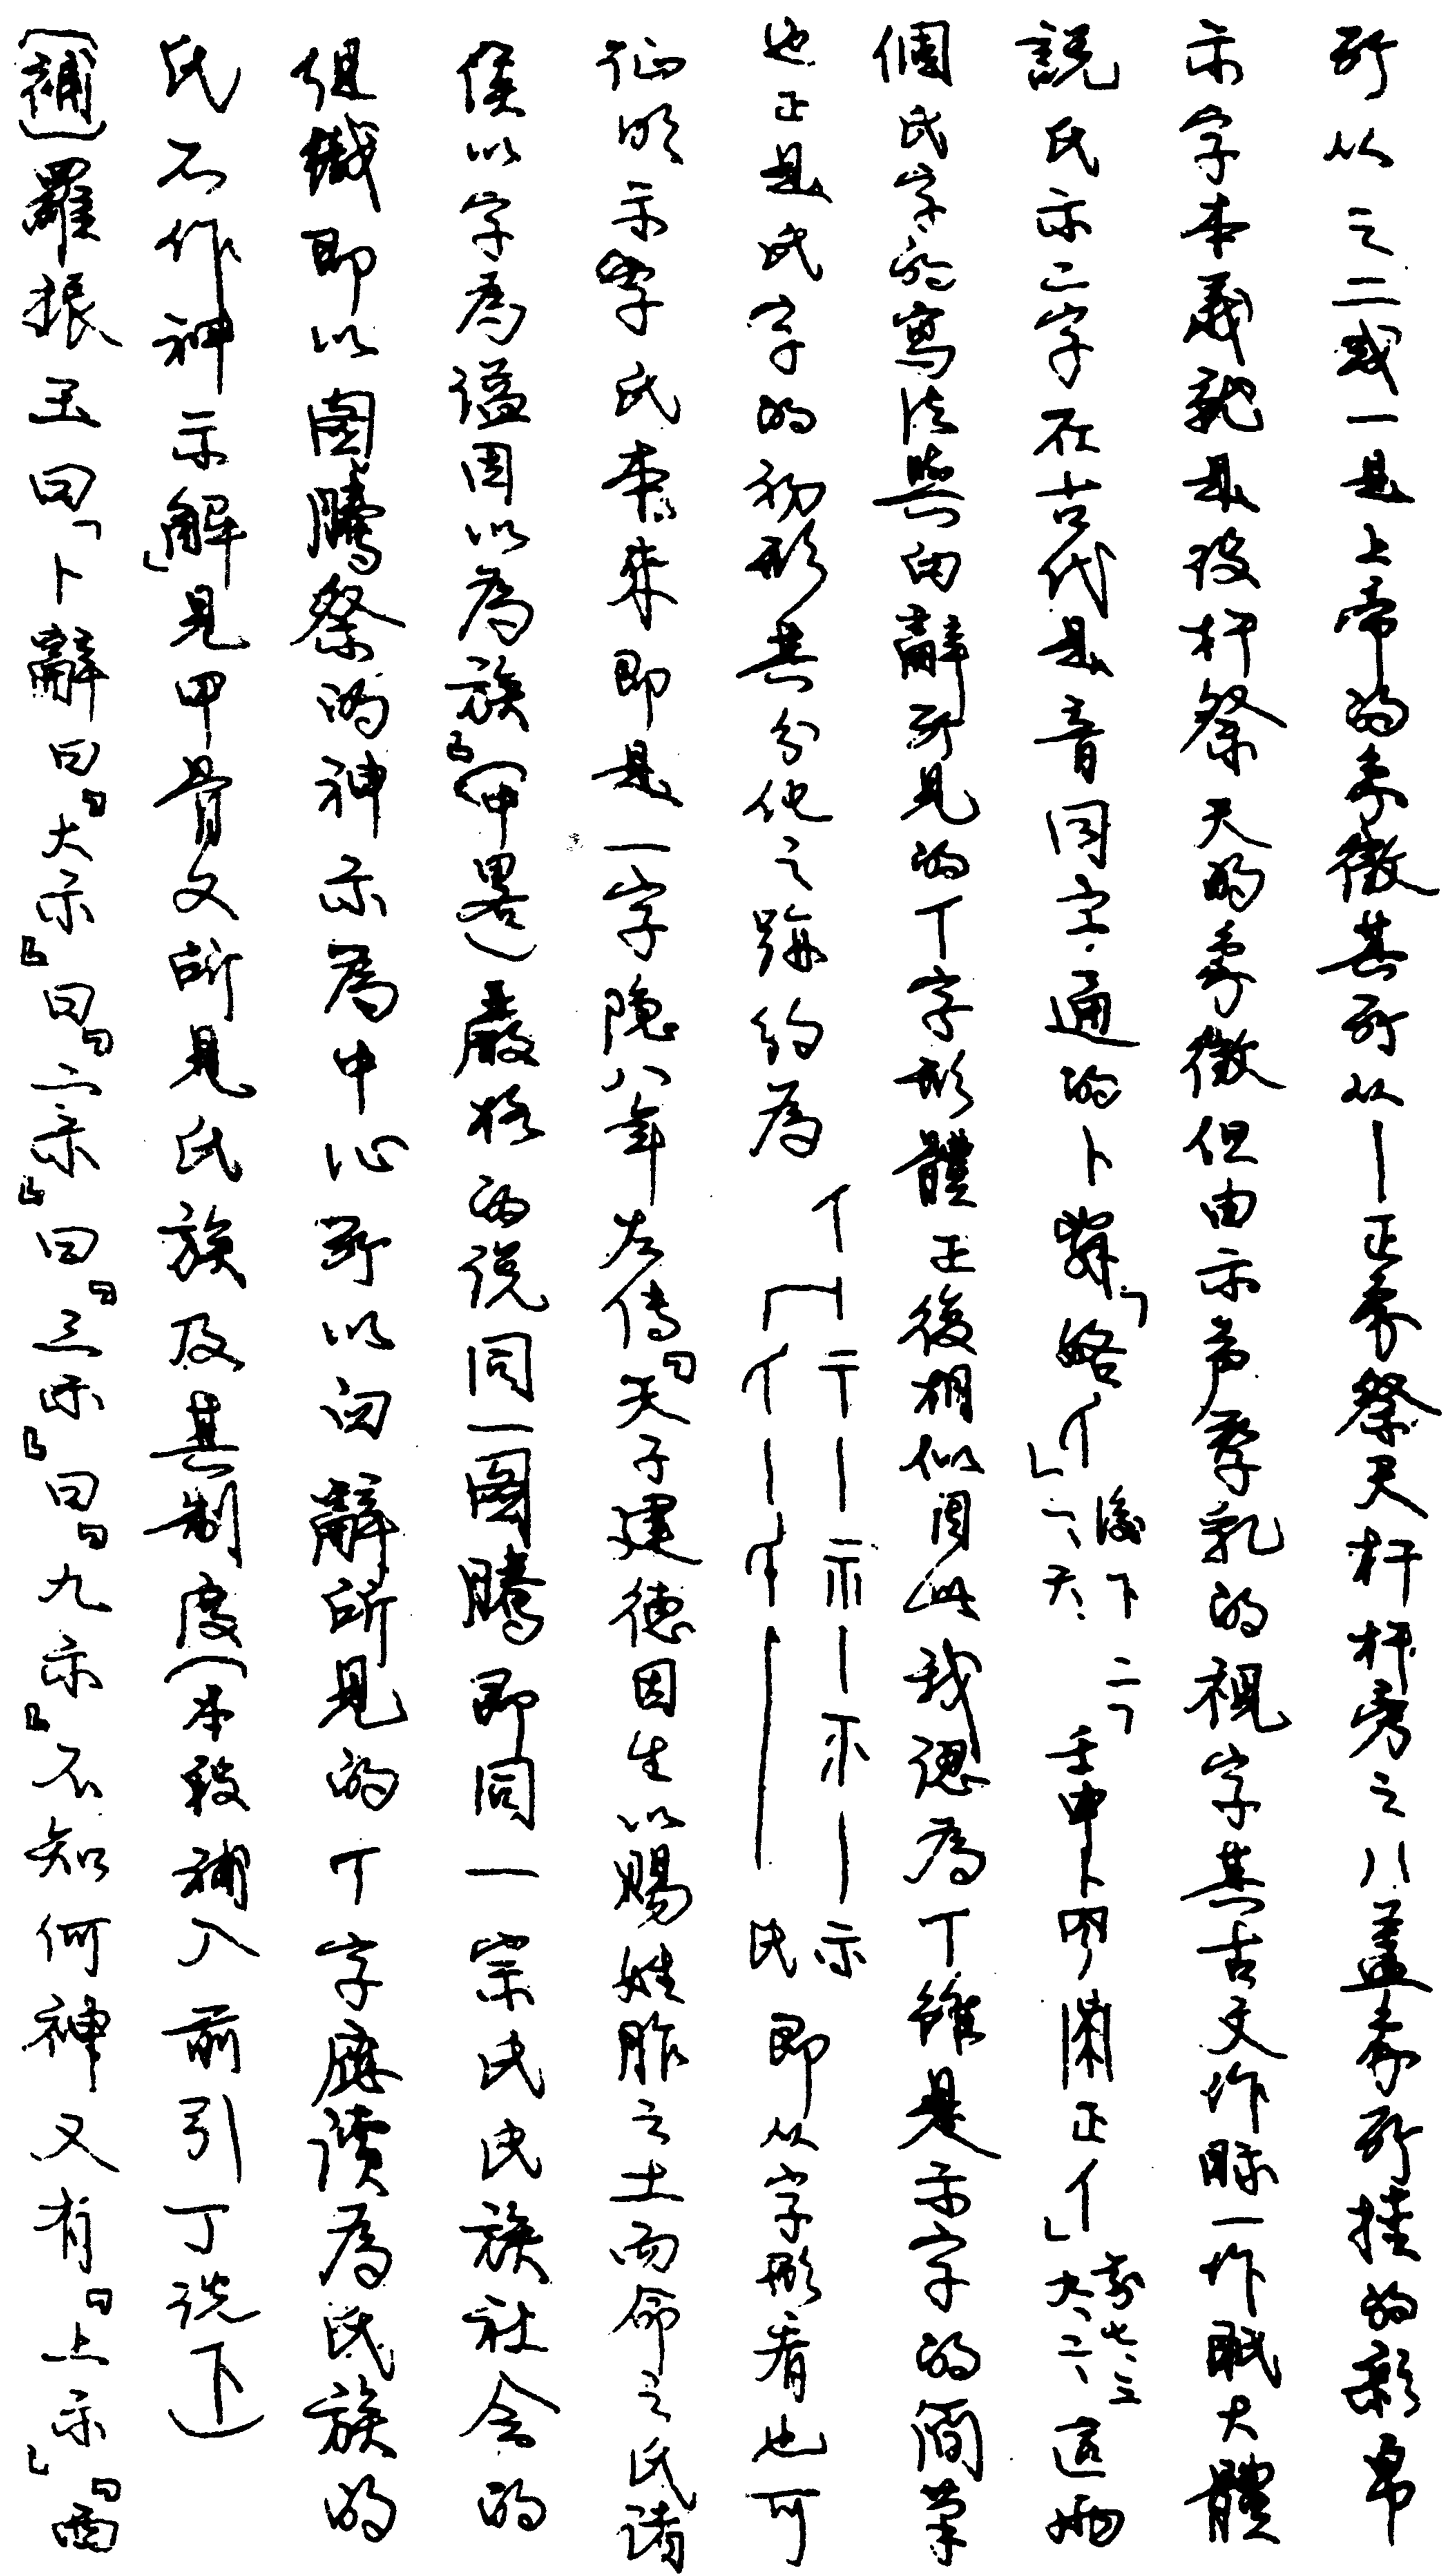 所以之二或一是上帝的象徵其所从丨正象祭天杆杆旁之八蓋象所挂的彩帛
示字本義就是設杆祭天的象徵但由示声孶乳的視字其古文作眎一作眡大體
說氏示二字在古代是音同字通的卜辭「略亻」後下二一、六、天、「壬申卜㱿陳正亻」前七、三九、二、這兩
個氏字的寫法與卣辭所見的丅字形體正復相似因此我認為丅雖是示字的簡筆
也正是氏字的初形其分化之跡約為 丅—示—示 氏 即从字形看也可
証明示字氏本來即是一字隐八年左传『天子建德因生以賜姓胙之土而命之氏诸
侯以字為謚因以為族』(甲畧)嚴格的说同一圖騰即同一宗氏氏族社会的
组織即以圖騰祭的神示為中心所以卣辭所見的丅字應讀為氏族的
氏不作神示解」見甲骨文所見氏族及其制度(本段補入前引丁说下)
(補)羅振玉曰「卜辭曰『大示』曰『二示』曰『三示』曰『九示』不知何神又有『上示』『西